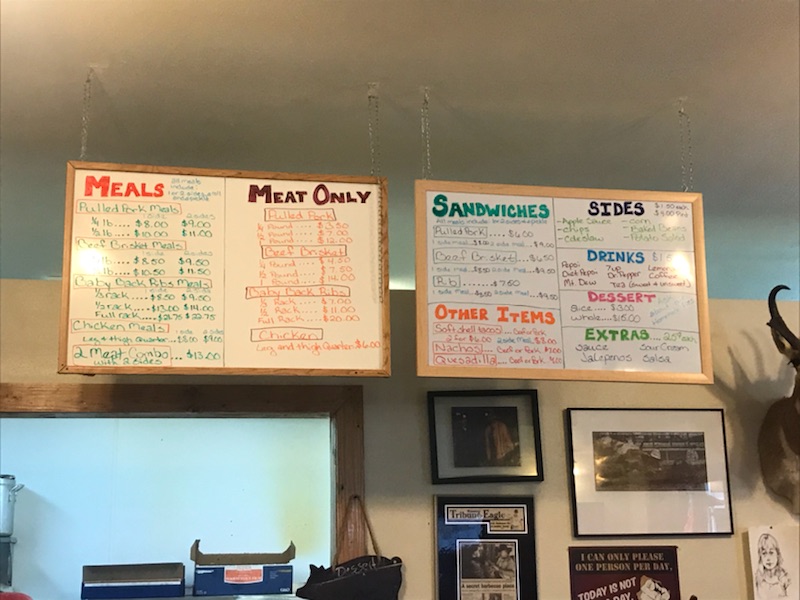 MEALS
all meals
include
Pulled Pork Meals
1 side 2 sides
¼ lb.... $8.00 $9.00
½ lb.... $10.00 $11.00
Beef Brisket Meals
1 side 2 sides
¼ lb.... $8.50 $9.50
½ lb.... $10.50 $11.50
Baby Back Ribs Meals
1 side 2 sides
rack.... $8.50 $9.50
½ rack....... $13.00 $14.00
Full rack...... $21.75 $22.75
Chicken Meals
1 side 2 sides
Leg & thigh Quarter... $8.00 $9.00
2 Meat Combo.... $13.00
with 2 sides
MEAT ONLY
Pulled Pork
¼ Pound.... $3.50
½ Pound.... $7.00
1 Pound.... $12.00
Beef Brisket
Pound.... $4.50
Pound.... $7.50
1 Pound.... $14.00
Baby Back Ribs
Rack.... $7.00
½ Rack.... $11.00
Full Rack.... $20.00
Chicken
Leg and thigh Quarter $6.00
SANDWICHES
Pulled Pork.... $6.00
1 side meal 2 side meal... $9.00
Beef Brisket.... $6.50
1 side meal 2 side meal.... $9.50
Rib........ $7.50
1 side meal 2 side meal.... $9.50
OTHER ITEMS
Soft shell tacos... Beef or Pork
2 for $6.00 2 side meal $8.00
Nachos... Beef or Pork
Quesadilla... Beef or Pork
SIDES
-Apple Sauce -corn
-chips -Baked Beans
-Coleslaw -Potato Salad
DRINKS
Pepsi 7up
Diet Pepsi Dr Pepper Coffee
Mt. Dew Tea (Sweet & unsweet)
DESSERT
Slice.... $3.00
whole... $15.00
EXTRAS .... 25¢ each
Sauce Sour Cream
Jalapenos Salsa
Tribune Eagle
A secret barbecue place
I CAN ONLY PLEASE
ONE PERSON PER DAY.
TODAY IS NOT